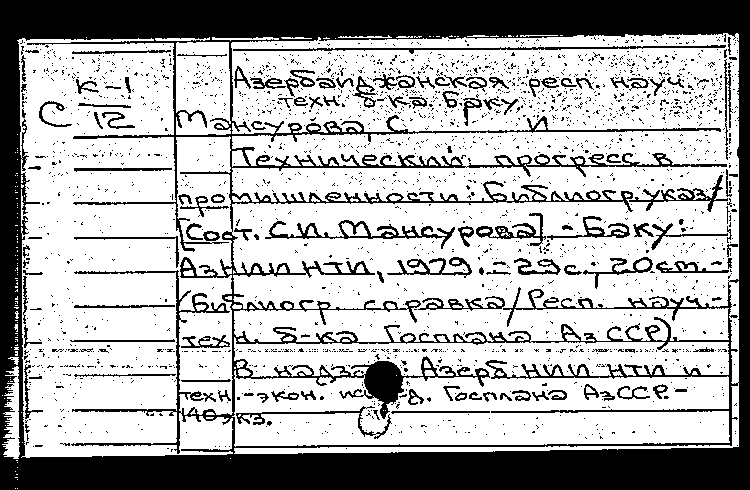 К-1
С 12
Азербайджанская респ. науч.-
техн. б-ка Баку.
Мансурова, С И
Технический прогресс в
промышленности: Библиогр. указ/
[Сост. С.И. Мансурова]. - Баку:
АзНИИНТИ, 1979. - 29с.; 20см.-
(Библиогр. справка/Респ. науч.-
техн. б-ка Госплана АзССР).
В надзаг: Азерб. НИИ НТИ и
техн.-экон. Госплана АзССР.-
140экз.